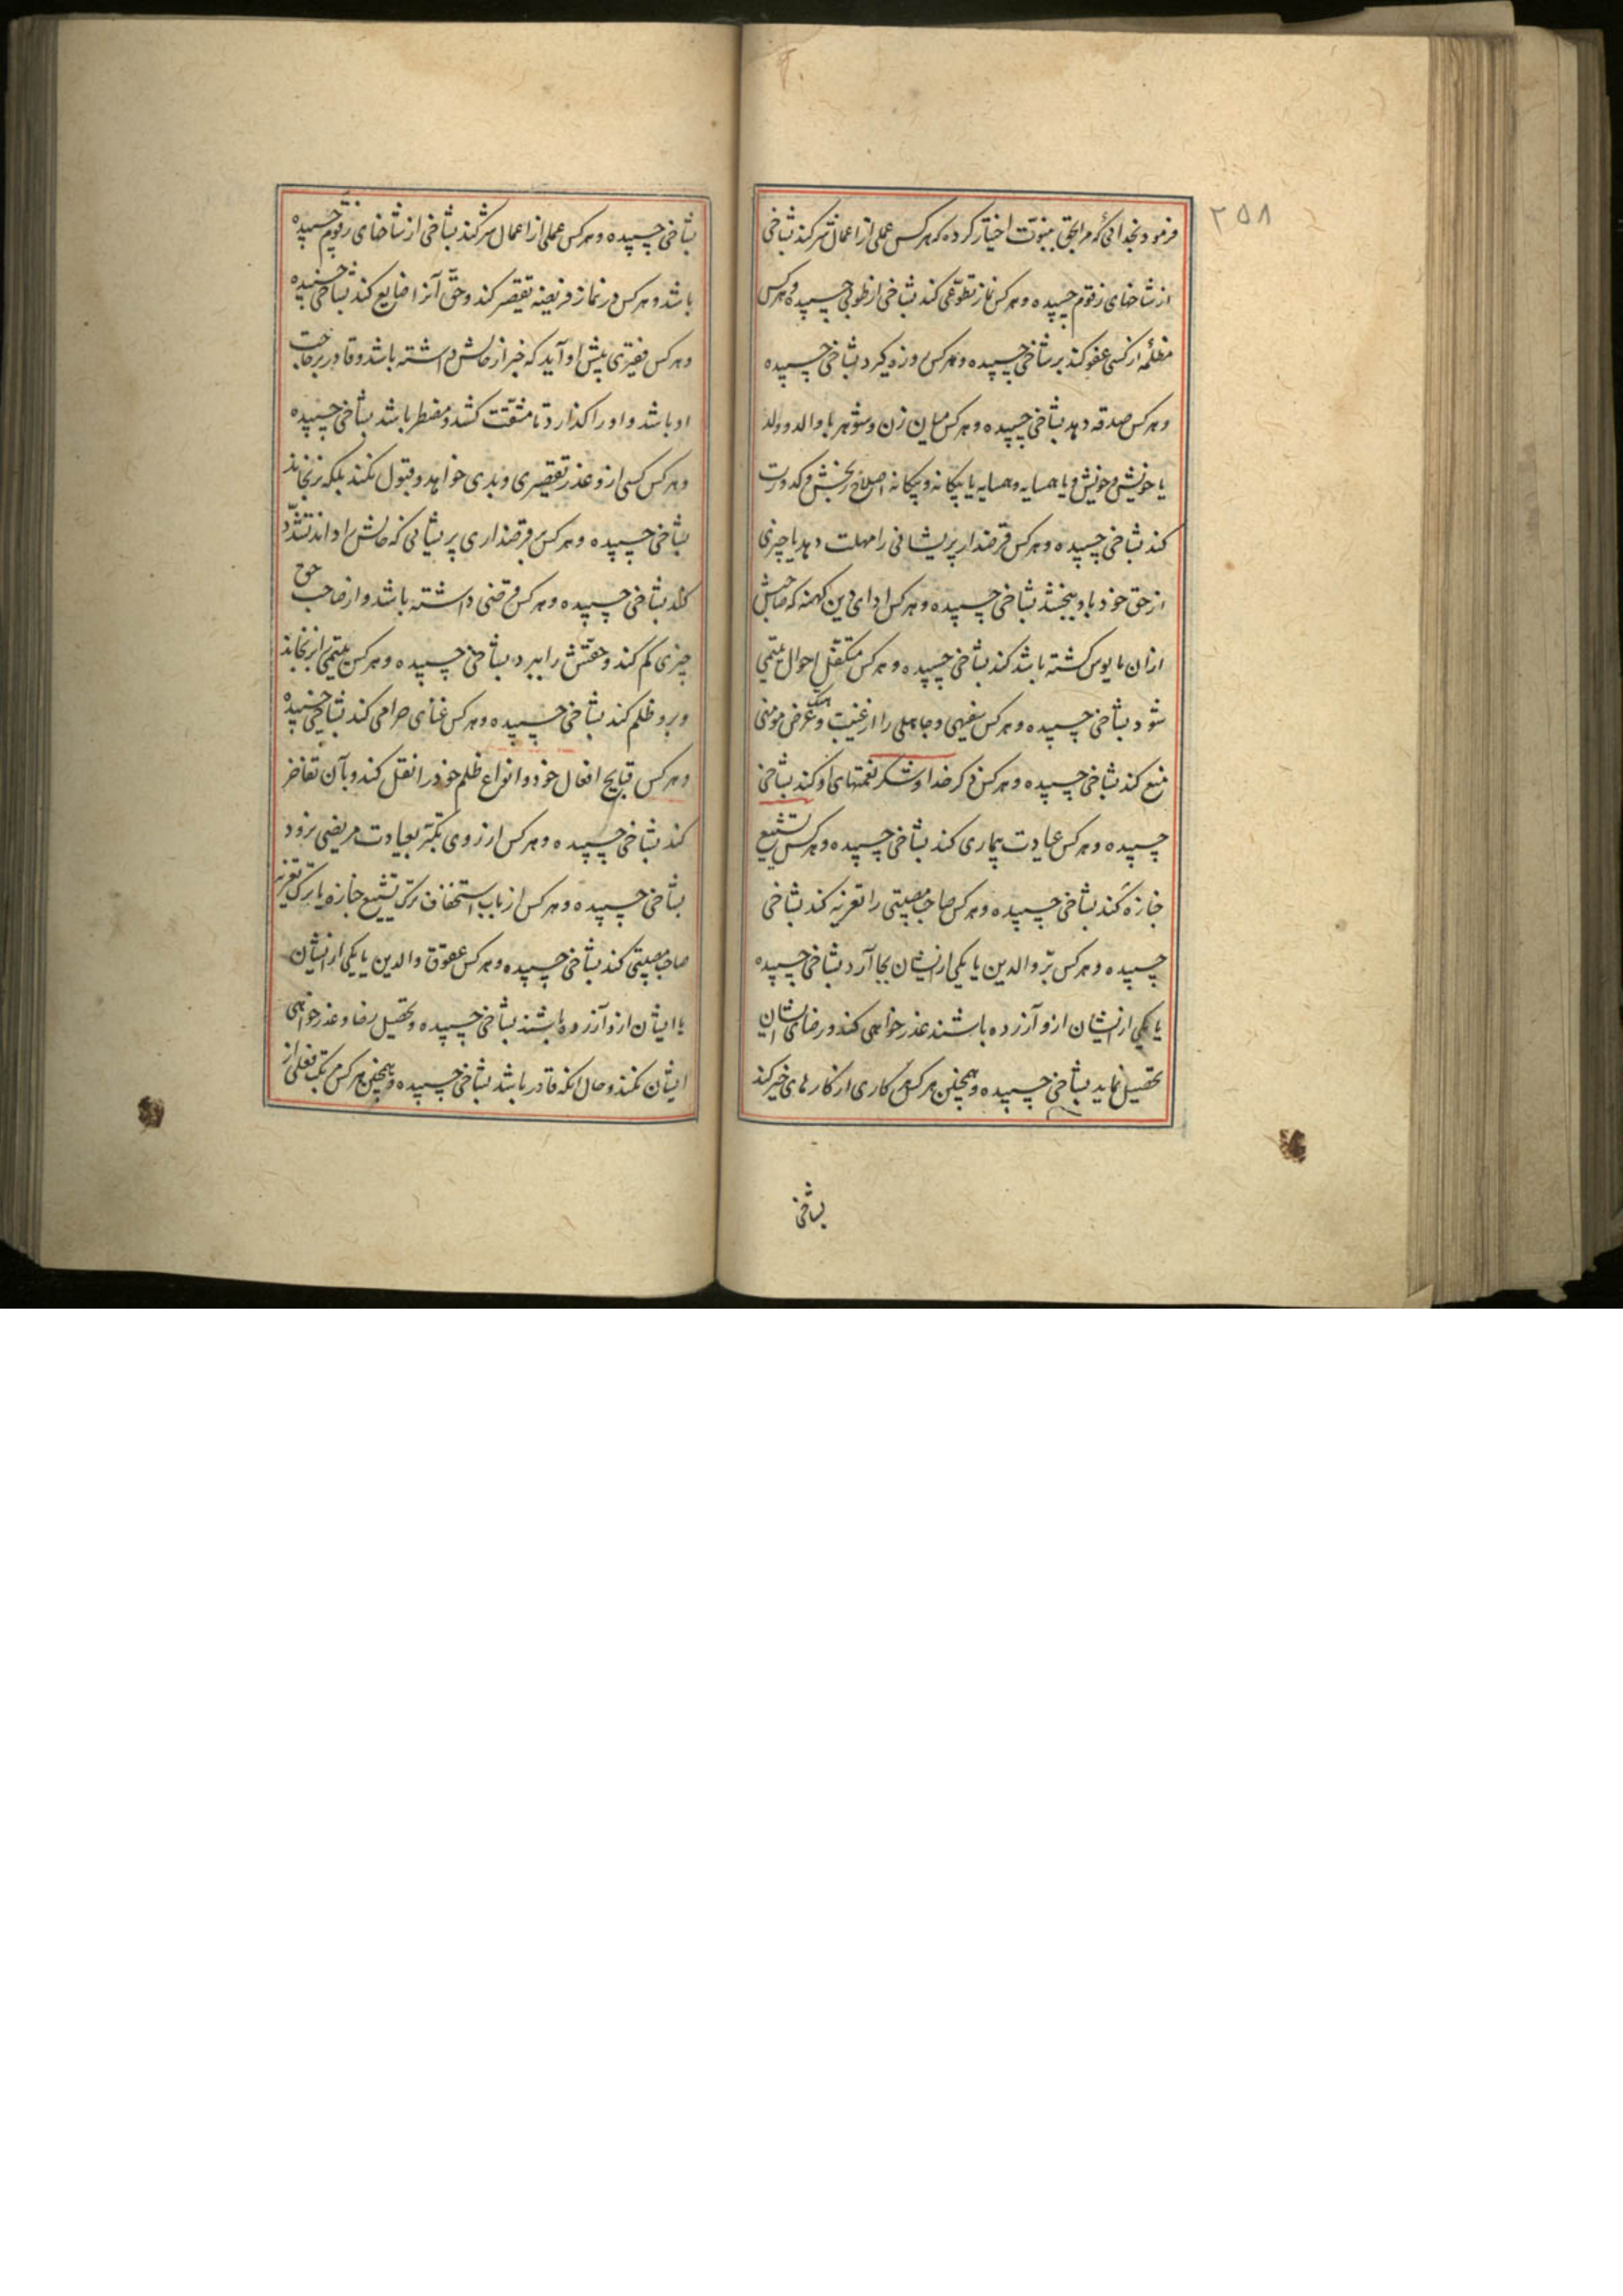 ۲۵۸
فرمود بخدائی که مرا بحق بنبوّت اختیار کرده که هر کس عملی از اعمال شر کند بشاخی
از شاخهای زقوم چسپیده و هر کس نماز تطوّعی کند بشاخی از طوبی چسپیده و هر کس
مظلمه از کسی عفو کند بر شاخی چسپیده و هر کس روزه گیرد بشاخی چسپیده
و هر کس صدقه دهد بشاخی چسپیده و هر کس میان زن و شوهر یا والد و ولد
یا خویش و خویش و یا همسایه و همسایه یا بیگانه و بیگانه اصلاح رنجش و کدورت
کند بشاخی چسپیده و هر کس قرضدار پریشانی را مهلت دهد یا چیزی
از حق خود باو ببخشد بشاخی چسپیده و هر کس ادای دین کهنه که صاحبش
ازان مایوس گشته باشد کند بشاخی چسپیده و هر کس متکفّل احوال یتیمی
شود بشاخی چسپیده و هر کس سفیهی و جاهلی را از غیبت و هتک عرض مومنی
منع کند بشاخی چسپیده و هر کس ذکر خدا و شکر نعمتهای او کند بشاخی
چسپیده و هر کس عیادت بیماری کند بشاخی چسپیده و هر کس تشییع
جنازه کند بشاخی چسپیده و هر کس صاحب مصیبتی را تعزیه کند بشاخی
چسپیده و هر کس برّ والدین یا یکی از ایشان بجا آرد بشاخی چسپیده
یا یکی از ایشان ازو آزرده باشند عذر خواهی کند و رضای ایشان
تحصیل نماید بشاخی چسپیده و همچنین هر کس کاری از کارهای خیر کند
بشاخی
بشاخی چسپیده و هر کس عملی از اعمال شر کند بشاخی از شاخهای زقوم چسپیده
باشد و هر کس در نماز فریضه تقصیر کند و حقّ آنرا ضایع کند بشاخی چسپیده
و هر کس فقیری پیش او آید که خبر از حالش داشته باشد و قادر بر حاجت
او باشد و او را گذارد تا مشقّت کشد و مضطر باشد بشاخی چسپیده
و هر کس کسی ازو عذر تقصیری و بدی خواهد و قبول نکند بلکه برنجاند
بشاخی چسپیده و هر کس بر قرضداری پریشانی که حالش را داند تشدّد
کند بشاخی چسپیده و هر کس قرضی داشته باشد و از صاحب حق
چیزی کم کند و حقّش را ببرد بشاخی چسپیده و هر کس یتیمی را برنجاند
و برو ظلم کند بشاخی چسپیده و هر کس غنای حرامی کند بشاخی چسپیده
و هر کس قبایح افعال خود و انواع ظلم خود را نقل کند و بآن تفاخر
کند بشاخی چسپیده و هر کس از روی تکبّر بعیادت مریضی نرود
بشاخی چسپیده و هر کس از باب استخفاف ترک تشییع جنازه یا ترک تعزیه
صاحب مصیبتی کند بشاخی چسپیده و هر کس عقوق والدین یا یکی از ایشان
یا ایشان ازو آزرده باشند بشاخی چسپیده و تحصیل رضا و عذر خواهی
ایشان نکند و حال آنکه قادر باشد بشاخی چسپیده و همچنین هر کس مرتکب فعلی از